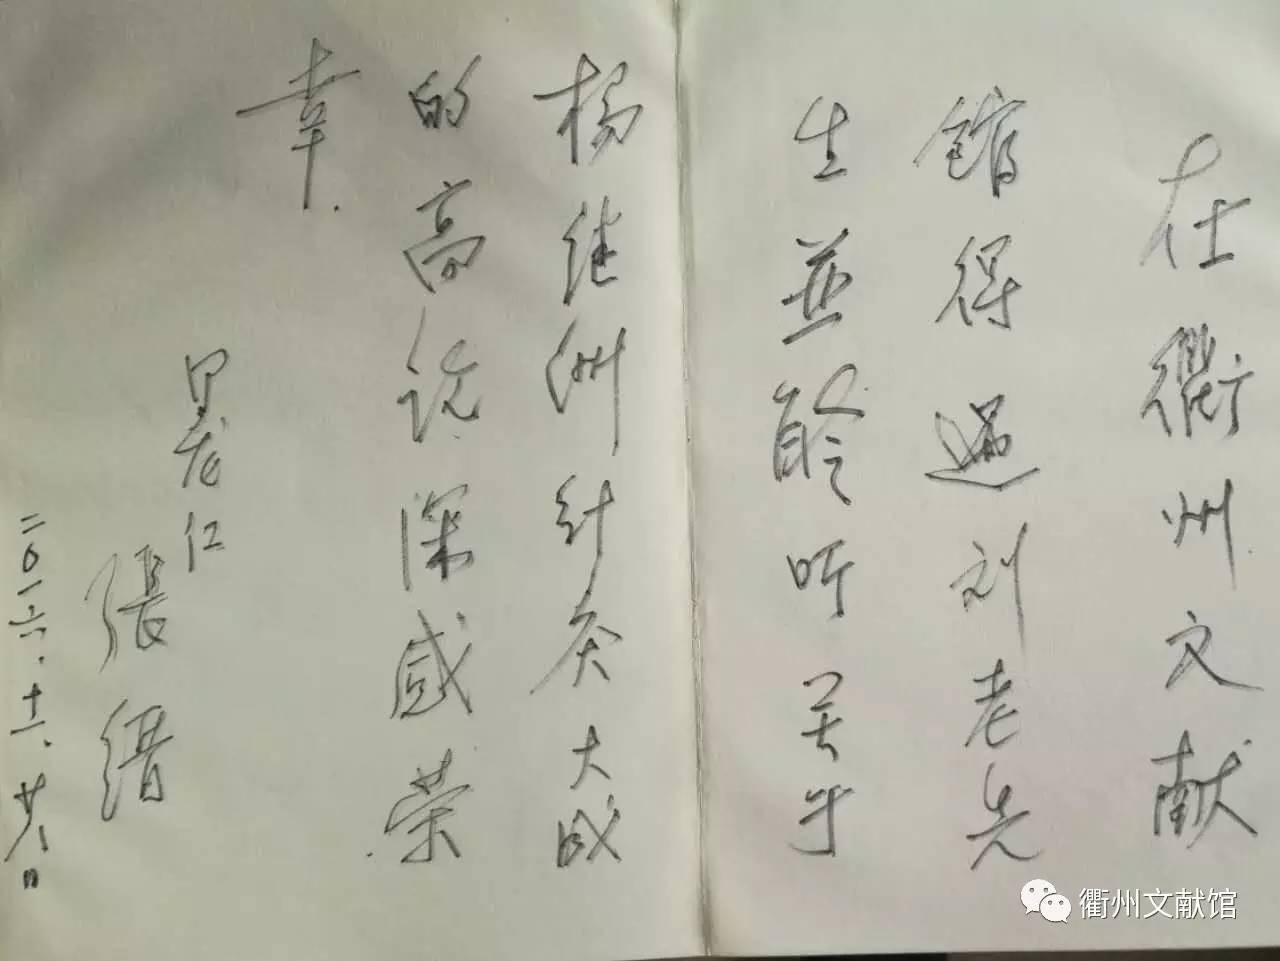 在衢州文献
馆得遇刘老先
生並聆听关于
杨继洲针灸大成
的高论深感荣
幸.
黑龙江
張缙
二〇一六.十一.廿八日
衢州文献馆